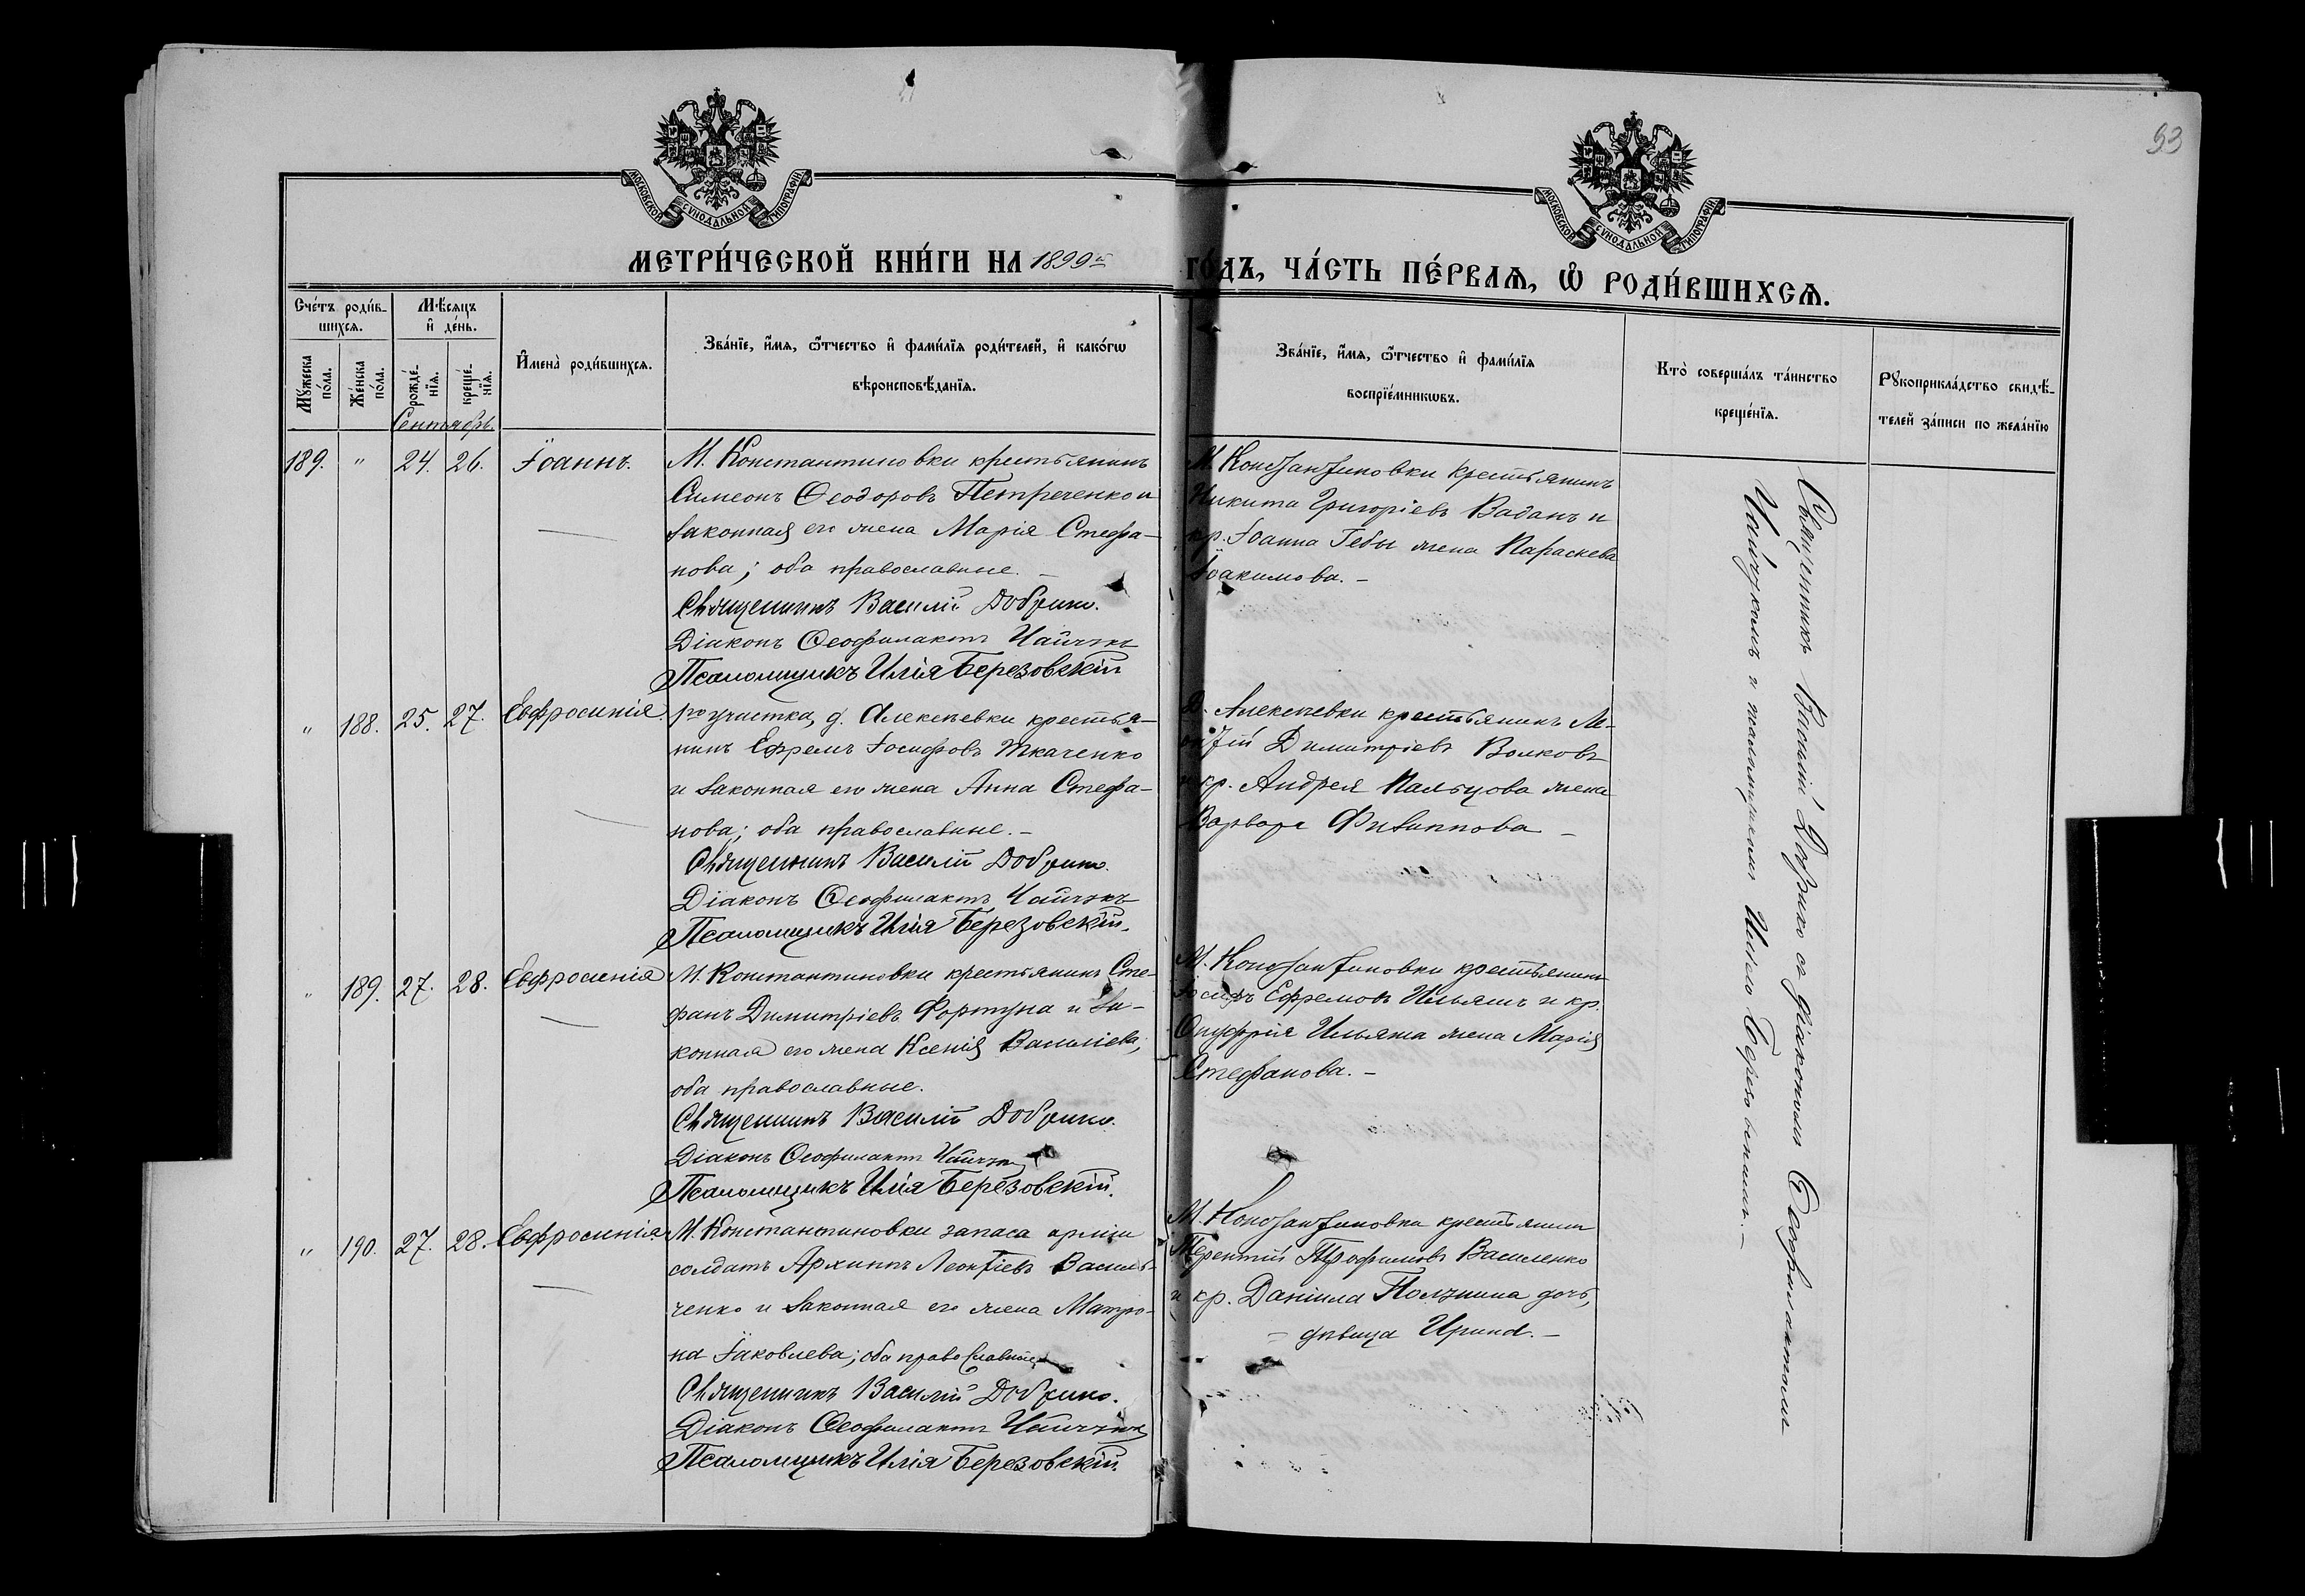 93
МОСКОВСКОЙ СѴНОДАЛЬНОЙ ТИПОГРАФІИ
МОСКОВСКОЙ СѴНОДАЛЬНОЙ ТИПОГРАФІИ
МЕТРИ́ЧЕСКОЙ КНИ́ГИ НА 1899й ГО́ДЪ, ЧА́СТЬ ПЕ́РВАѦ, Ѡ РОДИ́ВШИХСѦ.
Сче́тъ роди́в-
шихсѧ.
Мꙋжеска по́ла.
Же́нска по́ла.
Мѣсяцъ
и҆ де́нь.
рожде́-
нїѧ.
креще́-
нїѧ.
Сентябрь.
И҆мена̀ роди́вшихсѧ.
Зва́нїе, и҆́мѧ, ѻ҆́тчество и҆ фами́лїѧ роди́телей, и҆ како́гѡ
вѣроисповѣ́данїѧ.
Зва́нїе, и҆́мѧ, ѻ҆́тчество и҆ фами́лїѧ
воспрїе́мникѡвъ.
Кто̀ соверша́лъ та́инство
креще́нїѧ.
Рꙋкоприкла́дство свидѣ́-
телей за́писи по жела́нїю
189. " 24. 26. Іоаннъ.
М. Константиновки крестьянинъ
Симеонъ Ѳеодоровъ Петреченко и
законная его жена Марія Стефа-
нова; оба православные. –
Священникъ Василій Добрико.
Діаконъ Ѳеофилактъ Чайчук
Псаломщикъ Илія Березовскій
М. Константиновки крестьянинъ
Никита Григоріевъ Баданъ и
кр. Іоанна Гебы жена Параскева
Іоакимова. –
" 188. 25. 27. Евфросинія.
участка, д. Алексѣевки крестья-
нинъ Ефремъ Іосифовъ Ткаченко
и законная его жена Анна Стефа-
нова; оба православные. –
Священникъ Василій Добрико.
Діаконъ Ѳеофилактъ Чайчукъ
Псаломщикъ Илія Березовскій.
Д. Алексѣевки крестьянинъ Ле-
онтій Димитріевъ Волковъ
и кр. Андрея Пальцова жена
Варвара Филиппова –
" 189. 27. 28. Евфросинія
М. Константиновки крестьянинъ Сте-
фанъ Димитріевъ Фортуна и за-
конная его жена Ксенія Василіева;
оба православные.
Священникъ Василій Добрико.
Діаконъ Ѳеофилактъ Чайчук
Псаломщикъ Илія Березовскій.
М. Константиновки крестьянинъ
Іосифъ Ефремовъ Ильяшъ и кр.
Онуфрія Ильяша жена Марія
Стефанова. –
" 190. 27. 28. Евфросинія.
М. Константиновки запаса арміи
солдатъ Архиппъ Леонтіевъ Василь-
ченко и законная его жена Матро-
на Іаковлева; оба православные
Священникъ Василій Добрико.
Діаконъ Ѳеофилактъ Чайчук
Псаломщикъ Илія Березовскій.
М. Константиновки крестьянинъ
Терентій Трофимовъ Василенко
и кр. Даніила дочь,
– дѣвица Ирина. –
Священникъ Василій Добрико съ діакономъ Ѳеофилактомъ
Чайчукомъ и псаломщикомъ Иліею Березовскимъ. –